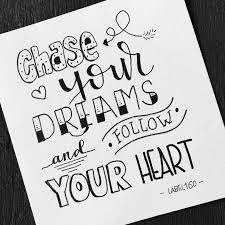 Chase
your
DREAMS
and FOLLOW
YOUR HEART
- LABEL160 -